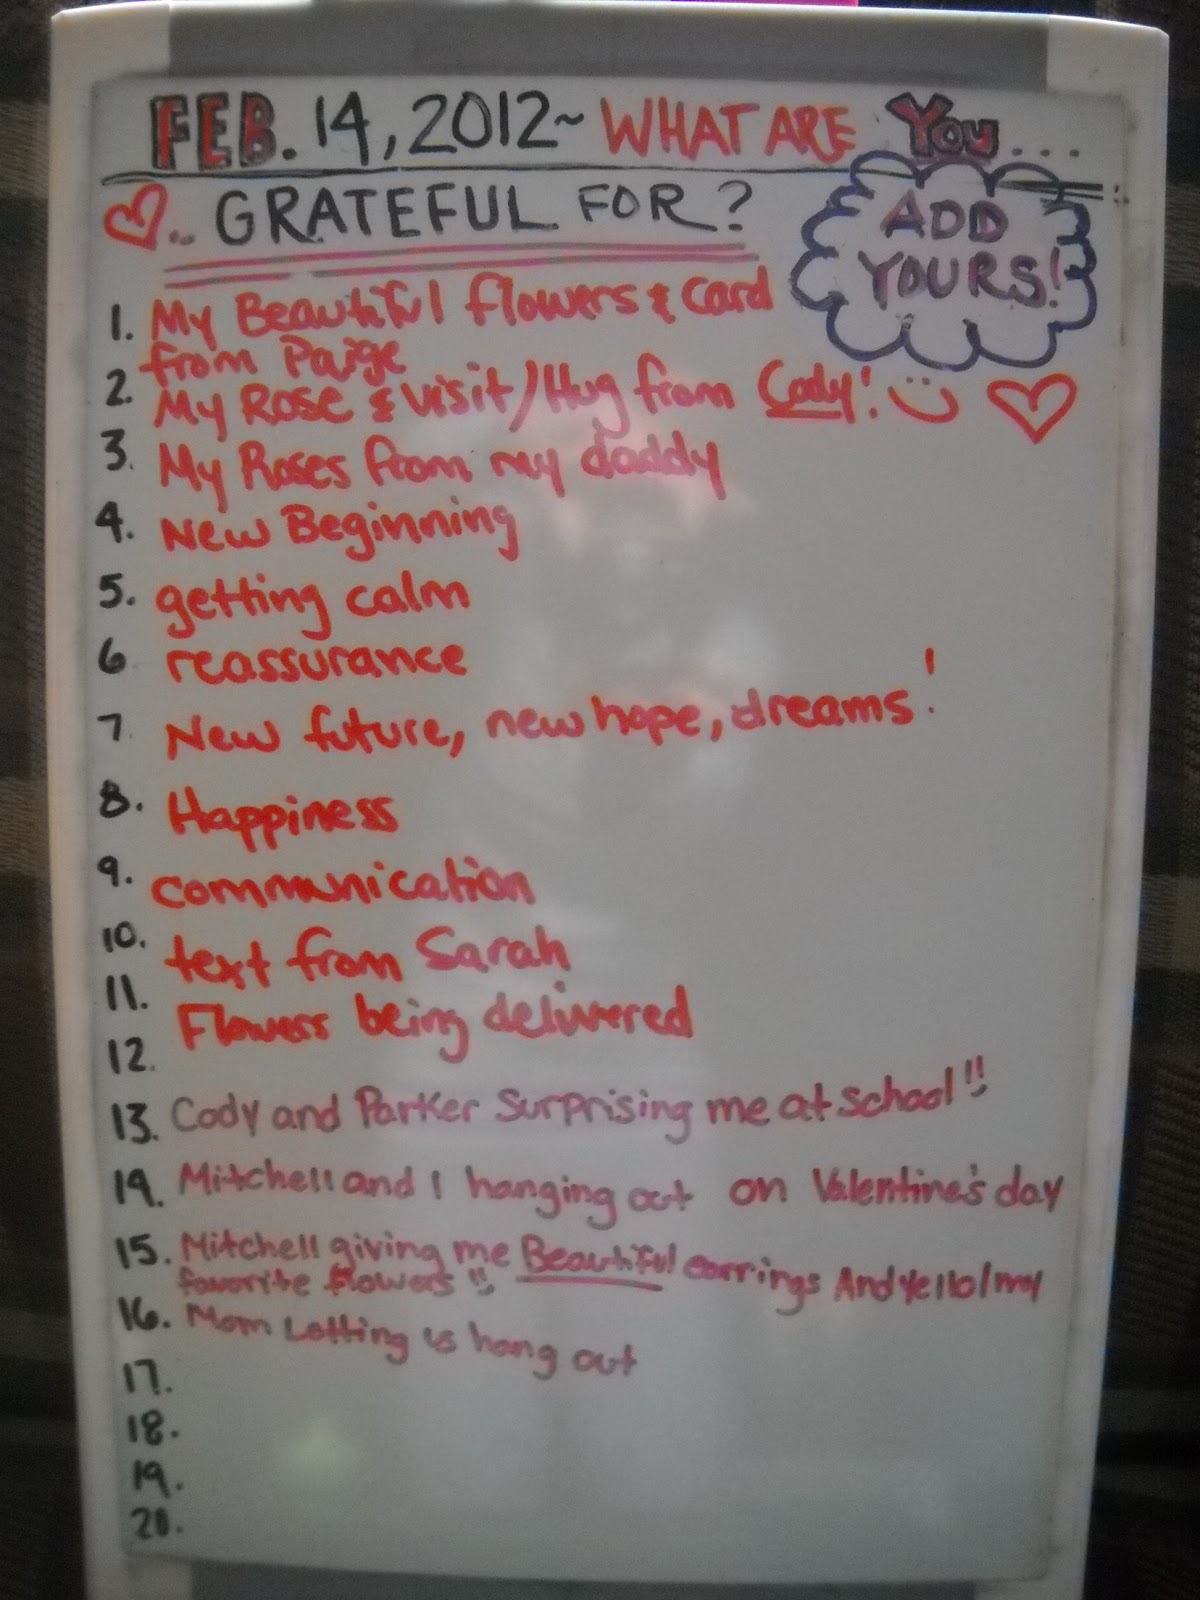 FEB. 14, 2012~ WHAT ARE YOU...
GRATEFUL FOR?
ADD
YOURS!
1. My Beautiful flowers & card
from Paige
2. My Rose & visit/Hug from Cody!
3. My Roses from my daddy
4. New Beginning
5. getting calm
6. reassurance
7. New future, new hope, dreams!
8. Happiness
9. communication
10. text from Sarah
11. Flowers being delivered
12.
13. Cody and Parker Surprising me at school!!
14. Mitchell and I hanging out on Valentine's day
15. Mitchell giving me Beautiful earrings And my
favorite flowers!!
16. Mom Letting us hang out
17.
18.
19.
20.